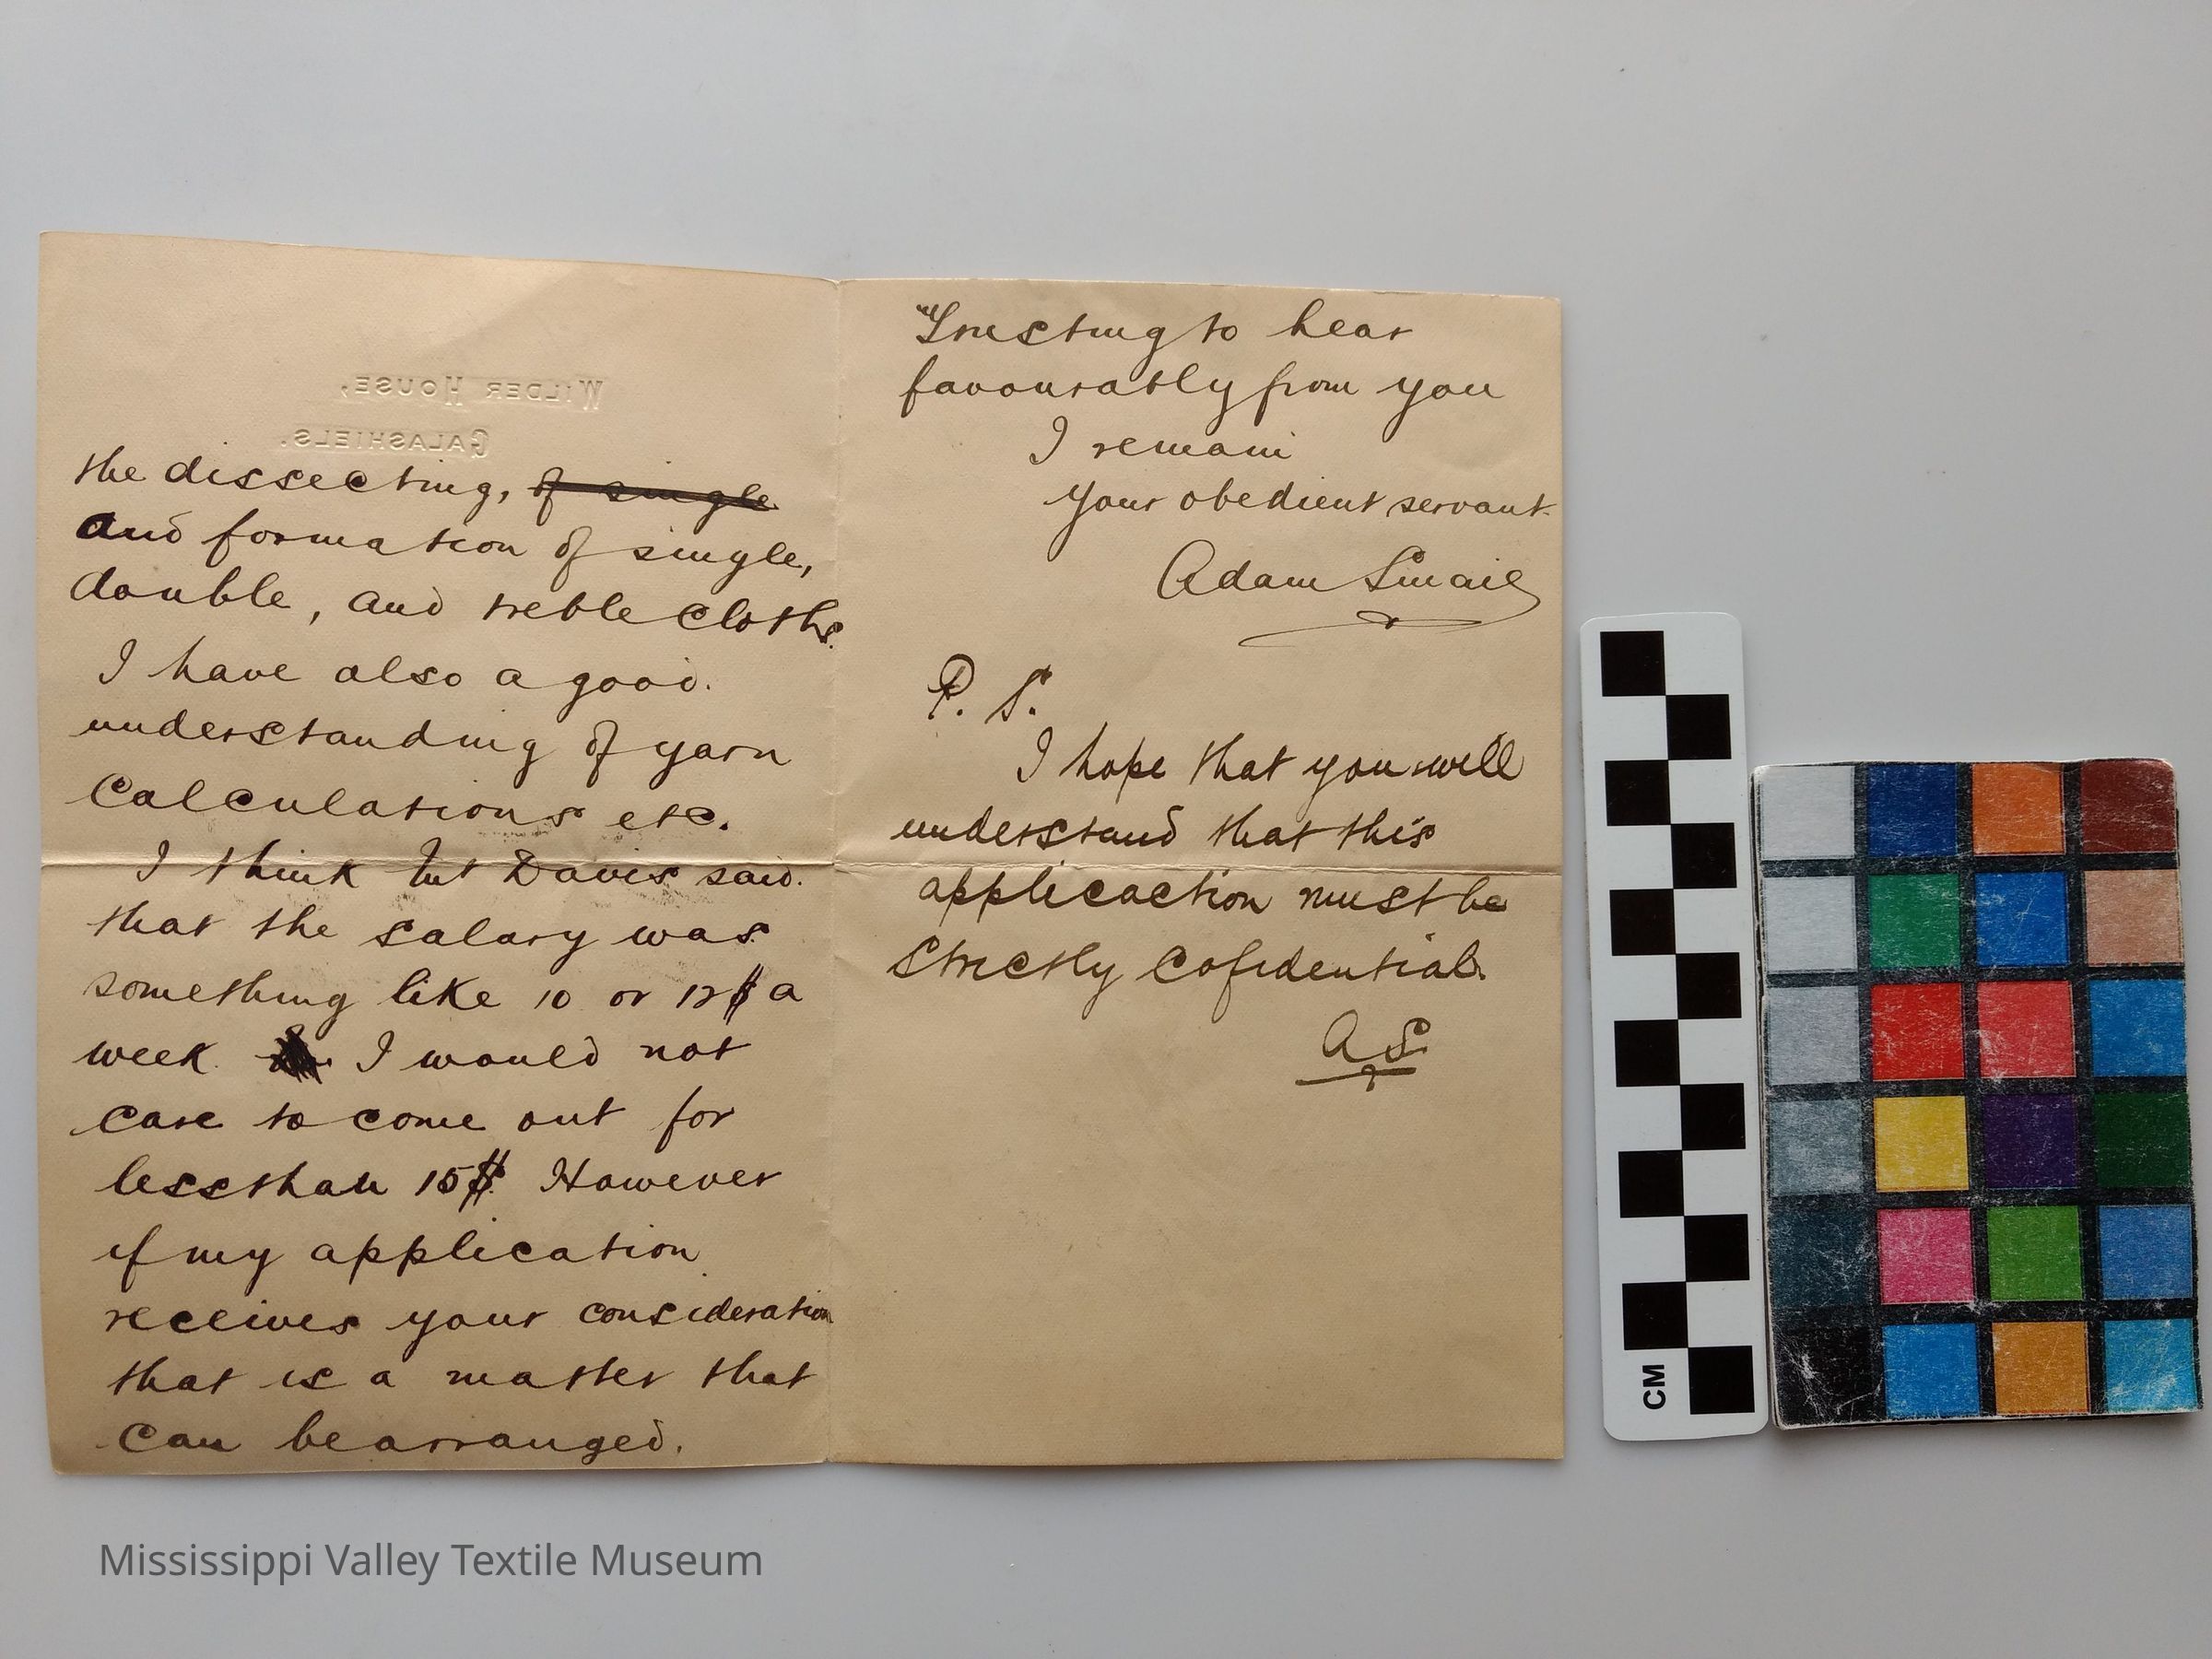 WILDER HOUSE,
GALASHIELS.
the dissecting, of single
and formation of single,
double, and treble cloths.
I have also a good.
understanding of yarn
Calculations etc.
I think but Davis said.
that the salary was
something like 10 or 12$ a
week. I would not
care to come out for
less than 15$. However
if my application
receives your consideration
that is a matter that
can be arranged.
Trusting to hear
favourably from you
I remain
Your obedient servant.
Adam Smail
P. S.
I hope that you will
understand that this
applicaction must be
strictly cofidential.
A S.
CM
Mississippi Valley Textile Museum